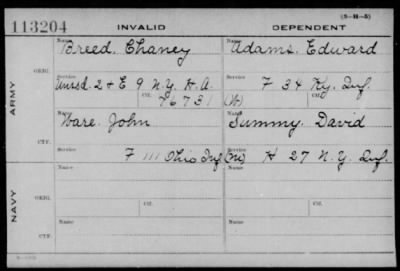 (3-H-5)
113204 INVALID DEPENDENT
Name Name
Breed, Chaney Adams, Edward
ARMY
ORIG.
Service Service
Unasd. 2 & E 9 N.Y. H.A. F 34 Ky. Inf.
Ctf. Ctf.
76731 (Mo)
Name Name
Ware, John Summy, David
CTF.
Service Service
F 111 Ohio Inf. (Mo) H 27 N.Y. Inf.
NAVY
Name Name
ORIG.
Ctf. Ctf.
Name Name
CTF.